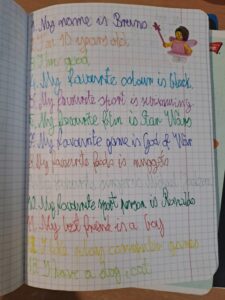 1. My name is Bruno
2. I'm 10 years old.
3. I'm good
4. My favourite colour is black.
5. My favourite sport is swimming
6. My favourite film is Star Wars
7. My favourite game is God of War
8. My favourite food is nuggets
10. My favourite sport person is Ronaldo
11. My best friend is a boy
12. I like play computer games
13. I have a dog, cat